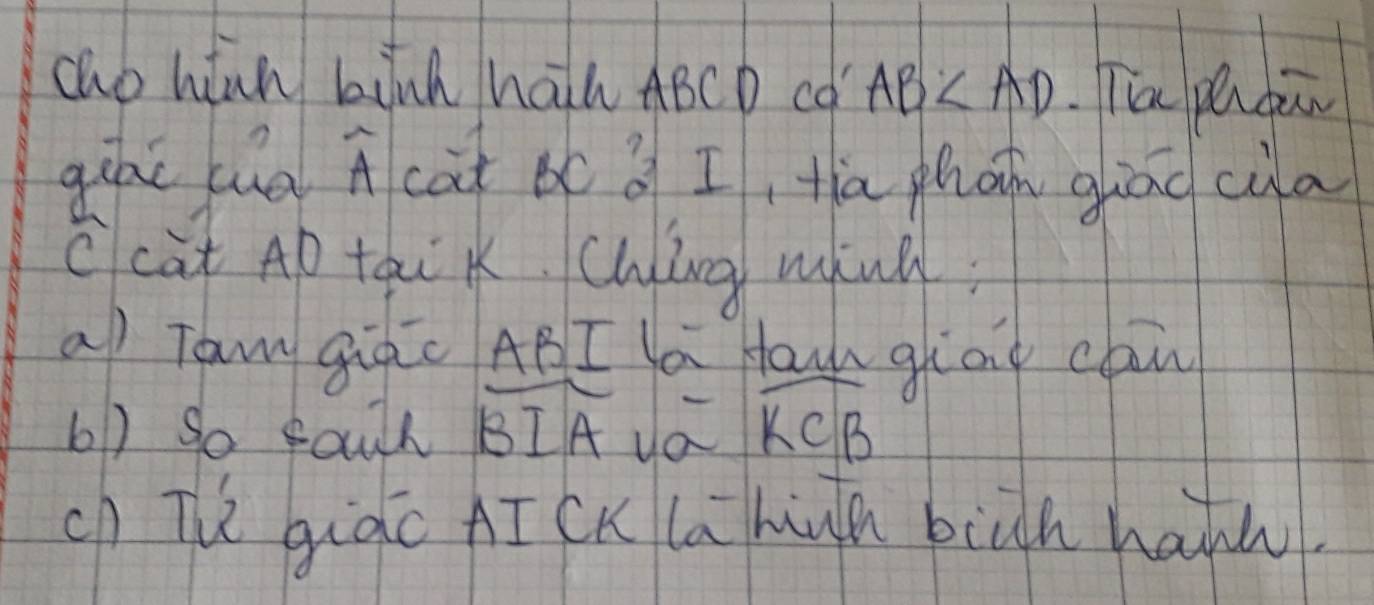 Cho hình bình hành ABCD có AB < AD. Tia phân
giác của Â cắt BC ở I, tia phân giác của
Ĉ cắt AD tại K. Chứng minh:
a) Tam giác ABI là tam giác cân
b) So sánh BIA và KCB
c) Tứ giác AICK là hình bình hành.